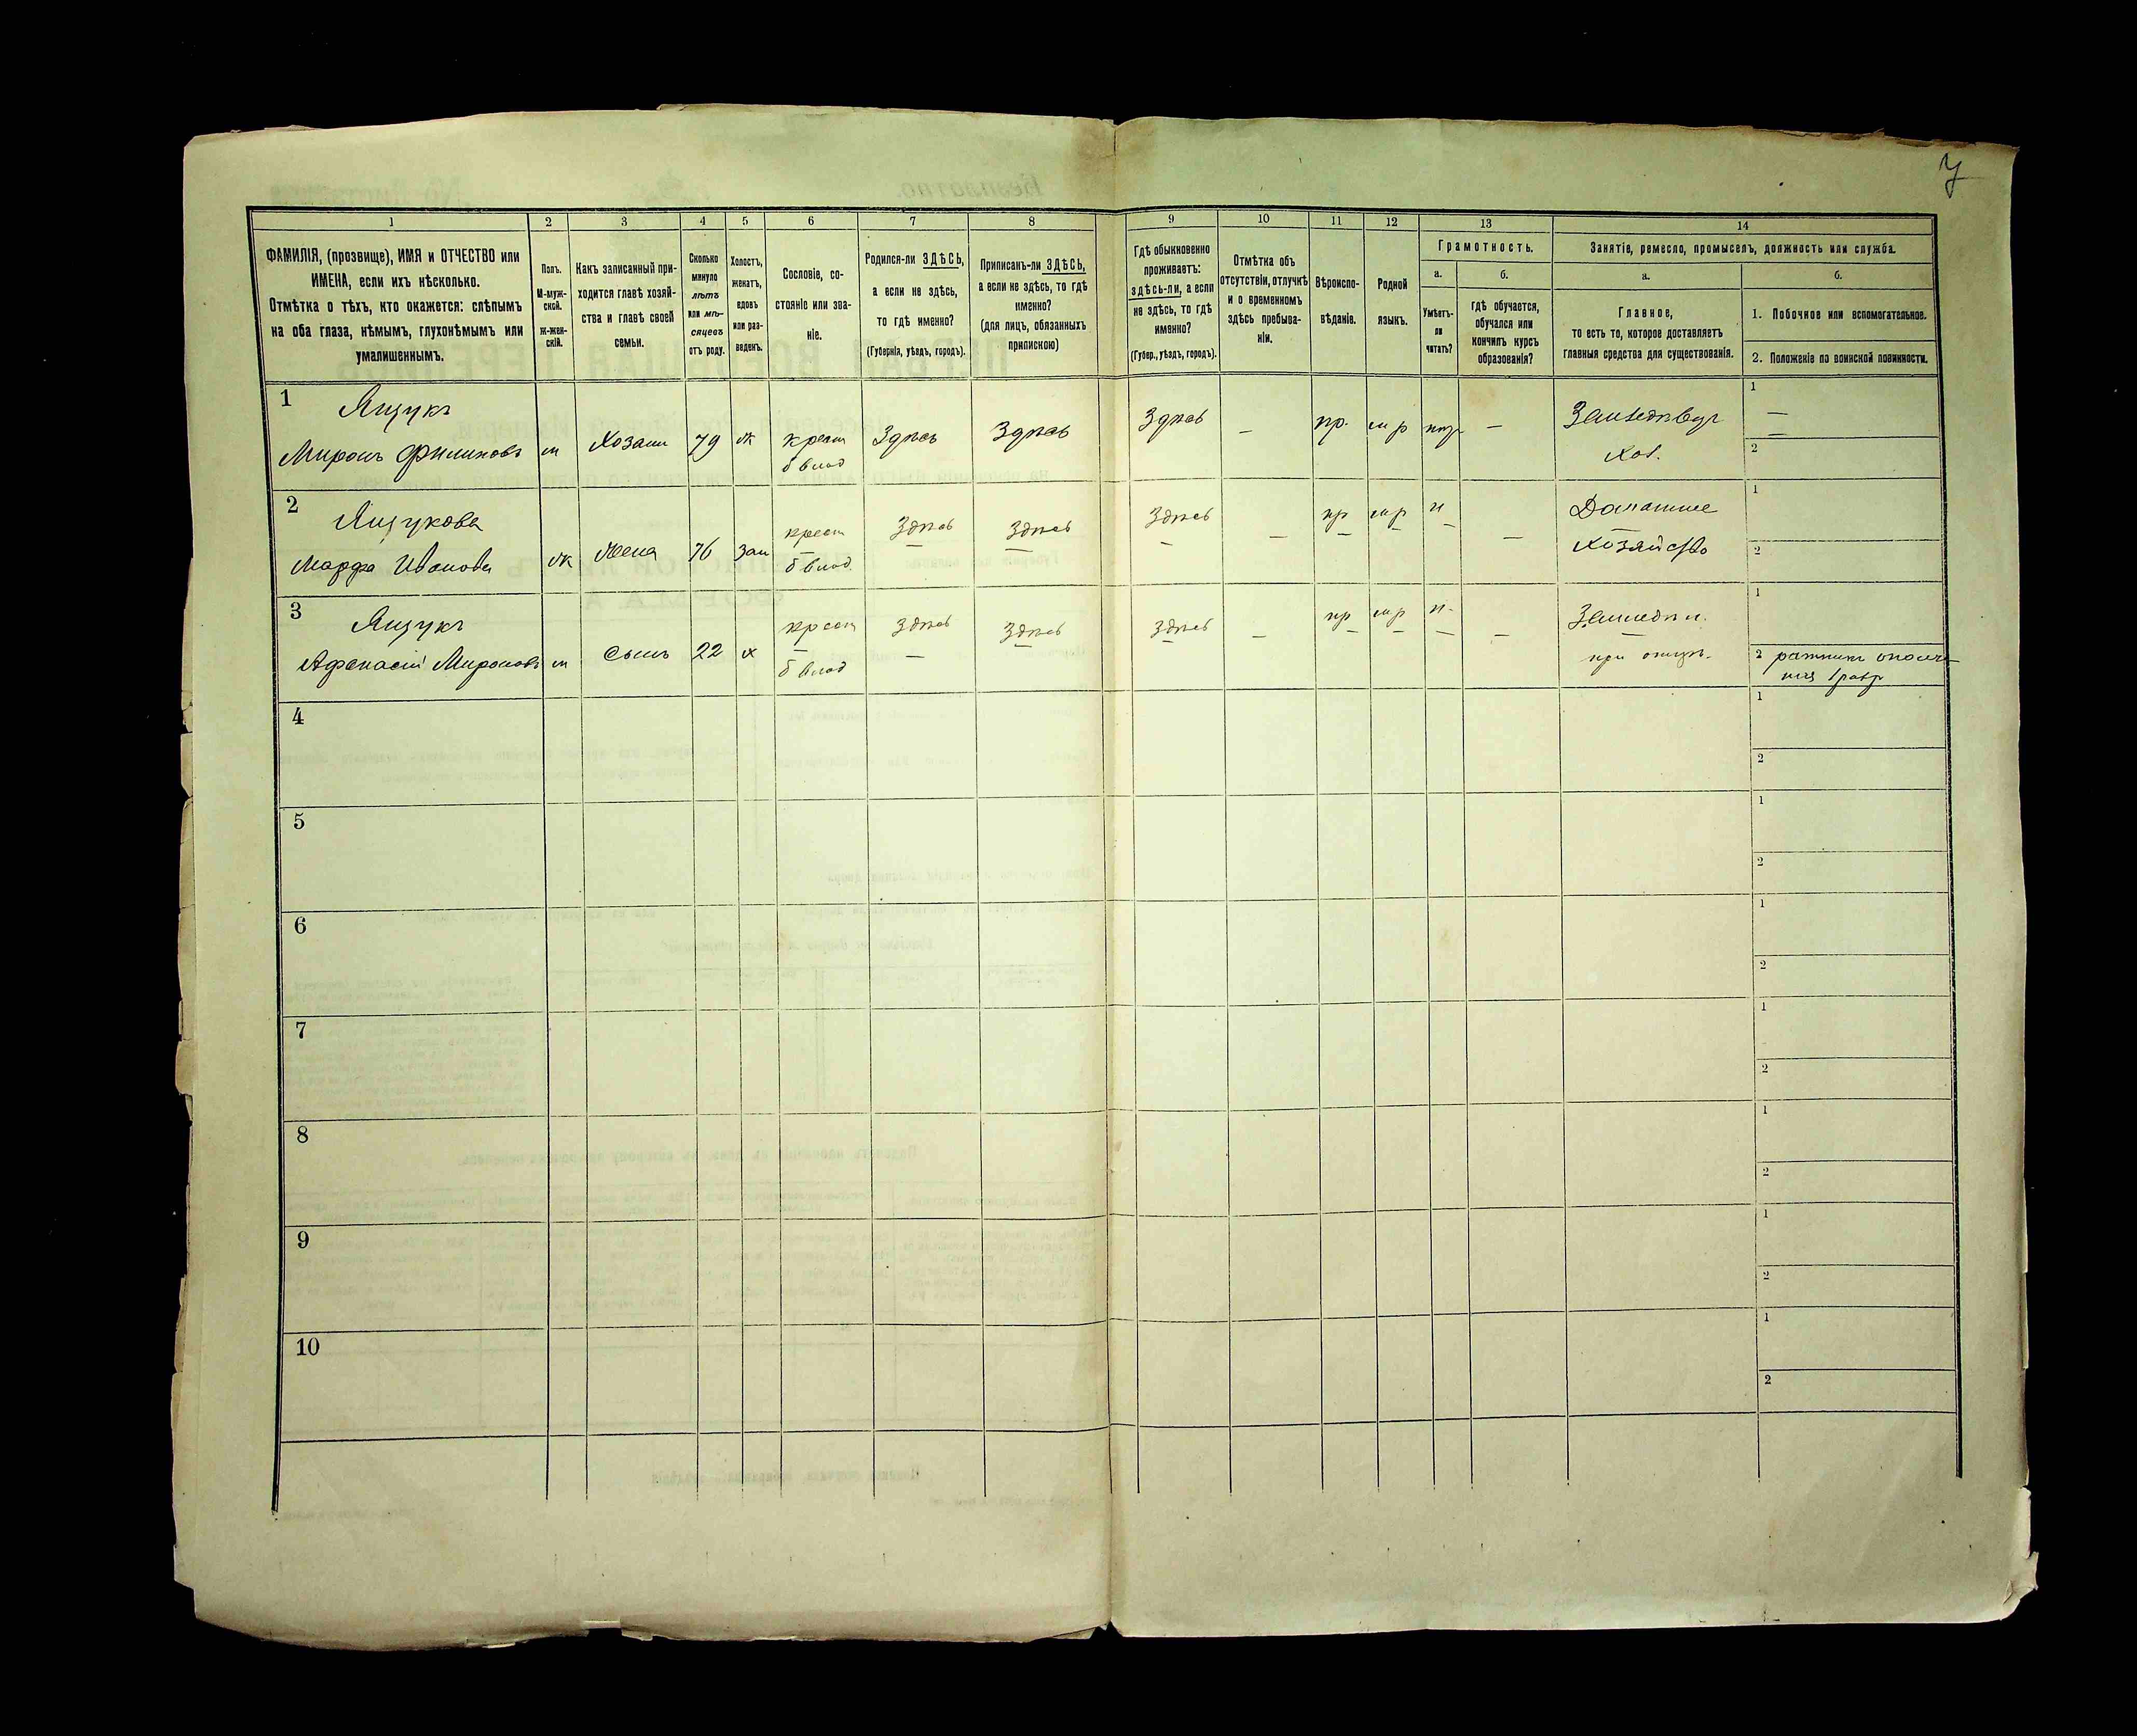 1 2 3 4 5 6 7 8 9 10 11 12 13 14
ФАМИЛІЯ, (прозвище), ИМЯ и ОТЧЕСТВО или
ИМЕНА, если ихъ нѣсколько.
Отмѣтка о тѣхъ, кто окажется: слѣпымъ
на оба глаза, нѣмымъ, глухонѣмымъ или
умалишеннымъ.
Полъ.
М-муж-
ской.
Ж-жен-
скій.
Какъ записанный при-
ходится главѣ хозяй-
ства и главѣ своей
семьи.
Сколько
минуло
лѣтъ
или мѣ-
сяцевъ
отъ роду.
Холостъ,
женатъ,
вдовъ
или раз-
веденъ.
Сословіе, со-
стояніе или зва-
ніе.
Родился-ли ЗДѢСЬ,
а если не здѣсь,
то гдѣ именно?
(Губернія, уѣздъ, городъ).
Приписанъ-ли ЗДѢСЬ,
а если не здѣсь, то гдѣ
именно?
(для лицъ, обязанныхъ
припискою)
Гдѣ обыкновенно
проживаетъ:
здѣсь-ли, а если
не здѣсь, то гдѣ
именно?
(Губер., уѣздъ, городъ).
Отмѣтка объ
отсутствіи, отлучкѣ
и о временномъ
здѣсь пребыва-
ніи.
Вѣроиспо-
вѣданіе.
Родной
языкъ.
Грамотность.
а.
Умѣетъ-
ли
читать?
б.
гдѣ обучается,
обучался или
кончилъ курсъ
образованія?
Занятіе, ремесло, промыселъ, должность или служба.
а.
Главное,
то есть то, которое доставляетъ
главныя средства для существованія.
б.
1. Побочное или вспомогательное.
2. Положеніе по воинской повинности.
1
Ящукъ
Миронъ Филиповъ
м
Хозяин
79
ж
крест
б влад
Здѣсь
Здѣсь
Здѣсь
—
пр.
м р
—
Хоз.
1 —
2
2
Ящукова
Марфа Иванова
ж
Жена
76
зам
крест
б влад.
Здѣсь
Здѣсь
Здѣсь
—
пр
м р
н
—
Домашнее
Хозяйство
1
2
3
Ящукъ
Афанасій Мироновъ
м
Сынъ
22
х
крест
б влад
Здѣсь
Здѣсь
Здѣсь
—
пр
м р
н.
—
при отцѣ.
1
2 ратникъ ополче-
нія 1 разр
4 1
2
5 1
2
6 1
2
7 1
2
8 1
2
9 1
2
10 1
2